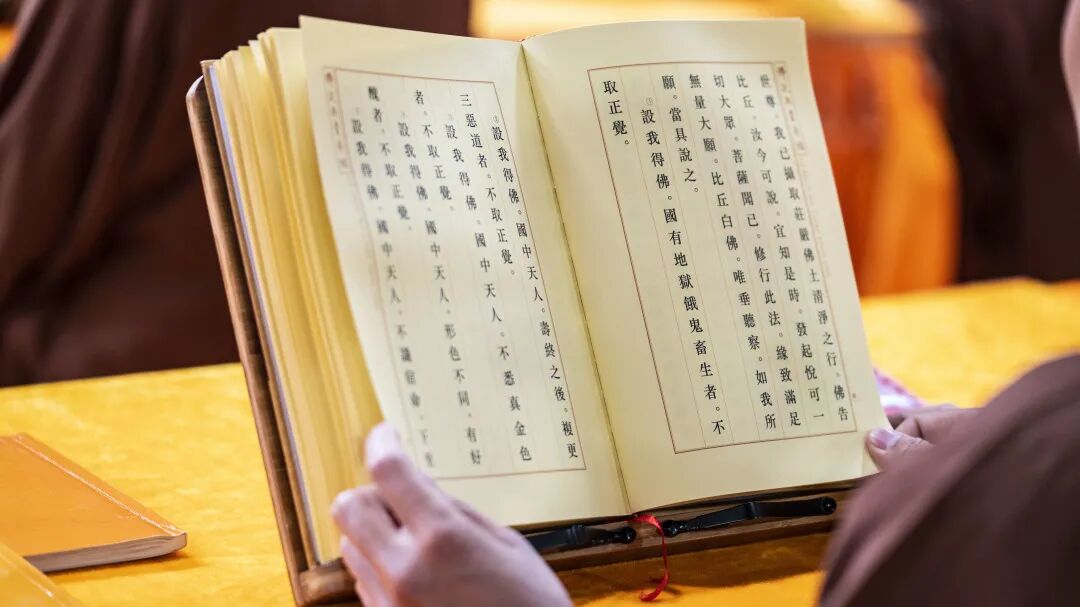 世尊。我已攝取莊嚴佛土清淨之行。佛告
比丘。汝今可說。宜知是時。發起悅可一
切大眾。菩薩聞已。修行此法。緣致滿足
無量大願。比丘白佛。唯垂聽察。如我所
願。當具說之。
①設我得佛。國有地獄餓鬼畜生者。不
取正覺。
②設我得佛。國中天人。壽終之後。複更
三惡道者。不取正覺。
③設我得佛。國中天人。不悉真金色
者。不取正覺。
④設我得佛。國中天人。形色不同。有好
醜者。不取正覺。
設我得佛。國中天人。不識宿命。下